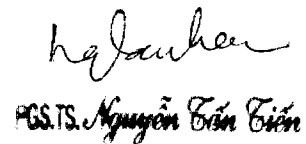 PGS.TS. Nguyễn Tấn Tiến